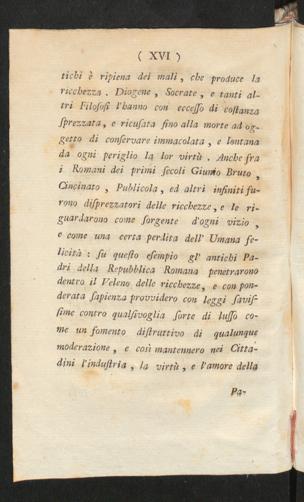 ( XVI )
tichi è ripiena dei mali, che produce la
ricchezza. Diogene, Socrate, e tanti al-
tri Filosofi l'hanno con eccesso di costanza
sprezzata, e ricusata fino alla morte ad og-
getto di conservare immacolata, e lontana
da ogni periglio la lor virtù. Anche fra
i Romani dei primi secoli Giunio Bruto,
Cincinato, Publicola, ed altri infiniti fu-
rono disprezzatori delle ricchezze, e le ri-
guardarono come sorgente d'ogni vizio,
e come una certa perdita dell'Umana fe-
licità: su questo esempio gl' antichi Pa-
dri della Repubblica Romana penetrarono
dentro il Veleno delle ricchezze, e con pon-
derata sapienza provvidero con leggi savis-
sime contro qualsivoglia sorte di lusso co-
me un fomento distruttivo di qualunque
moderazione, e così mantennero nei Citta-
dini l'industria, la virtù, e l'amore della
Pa-